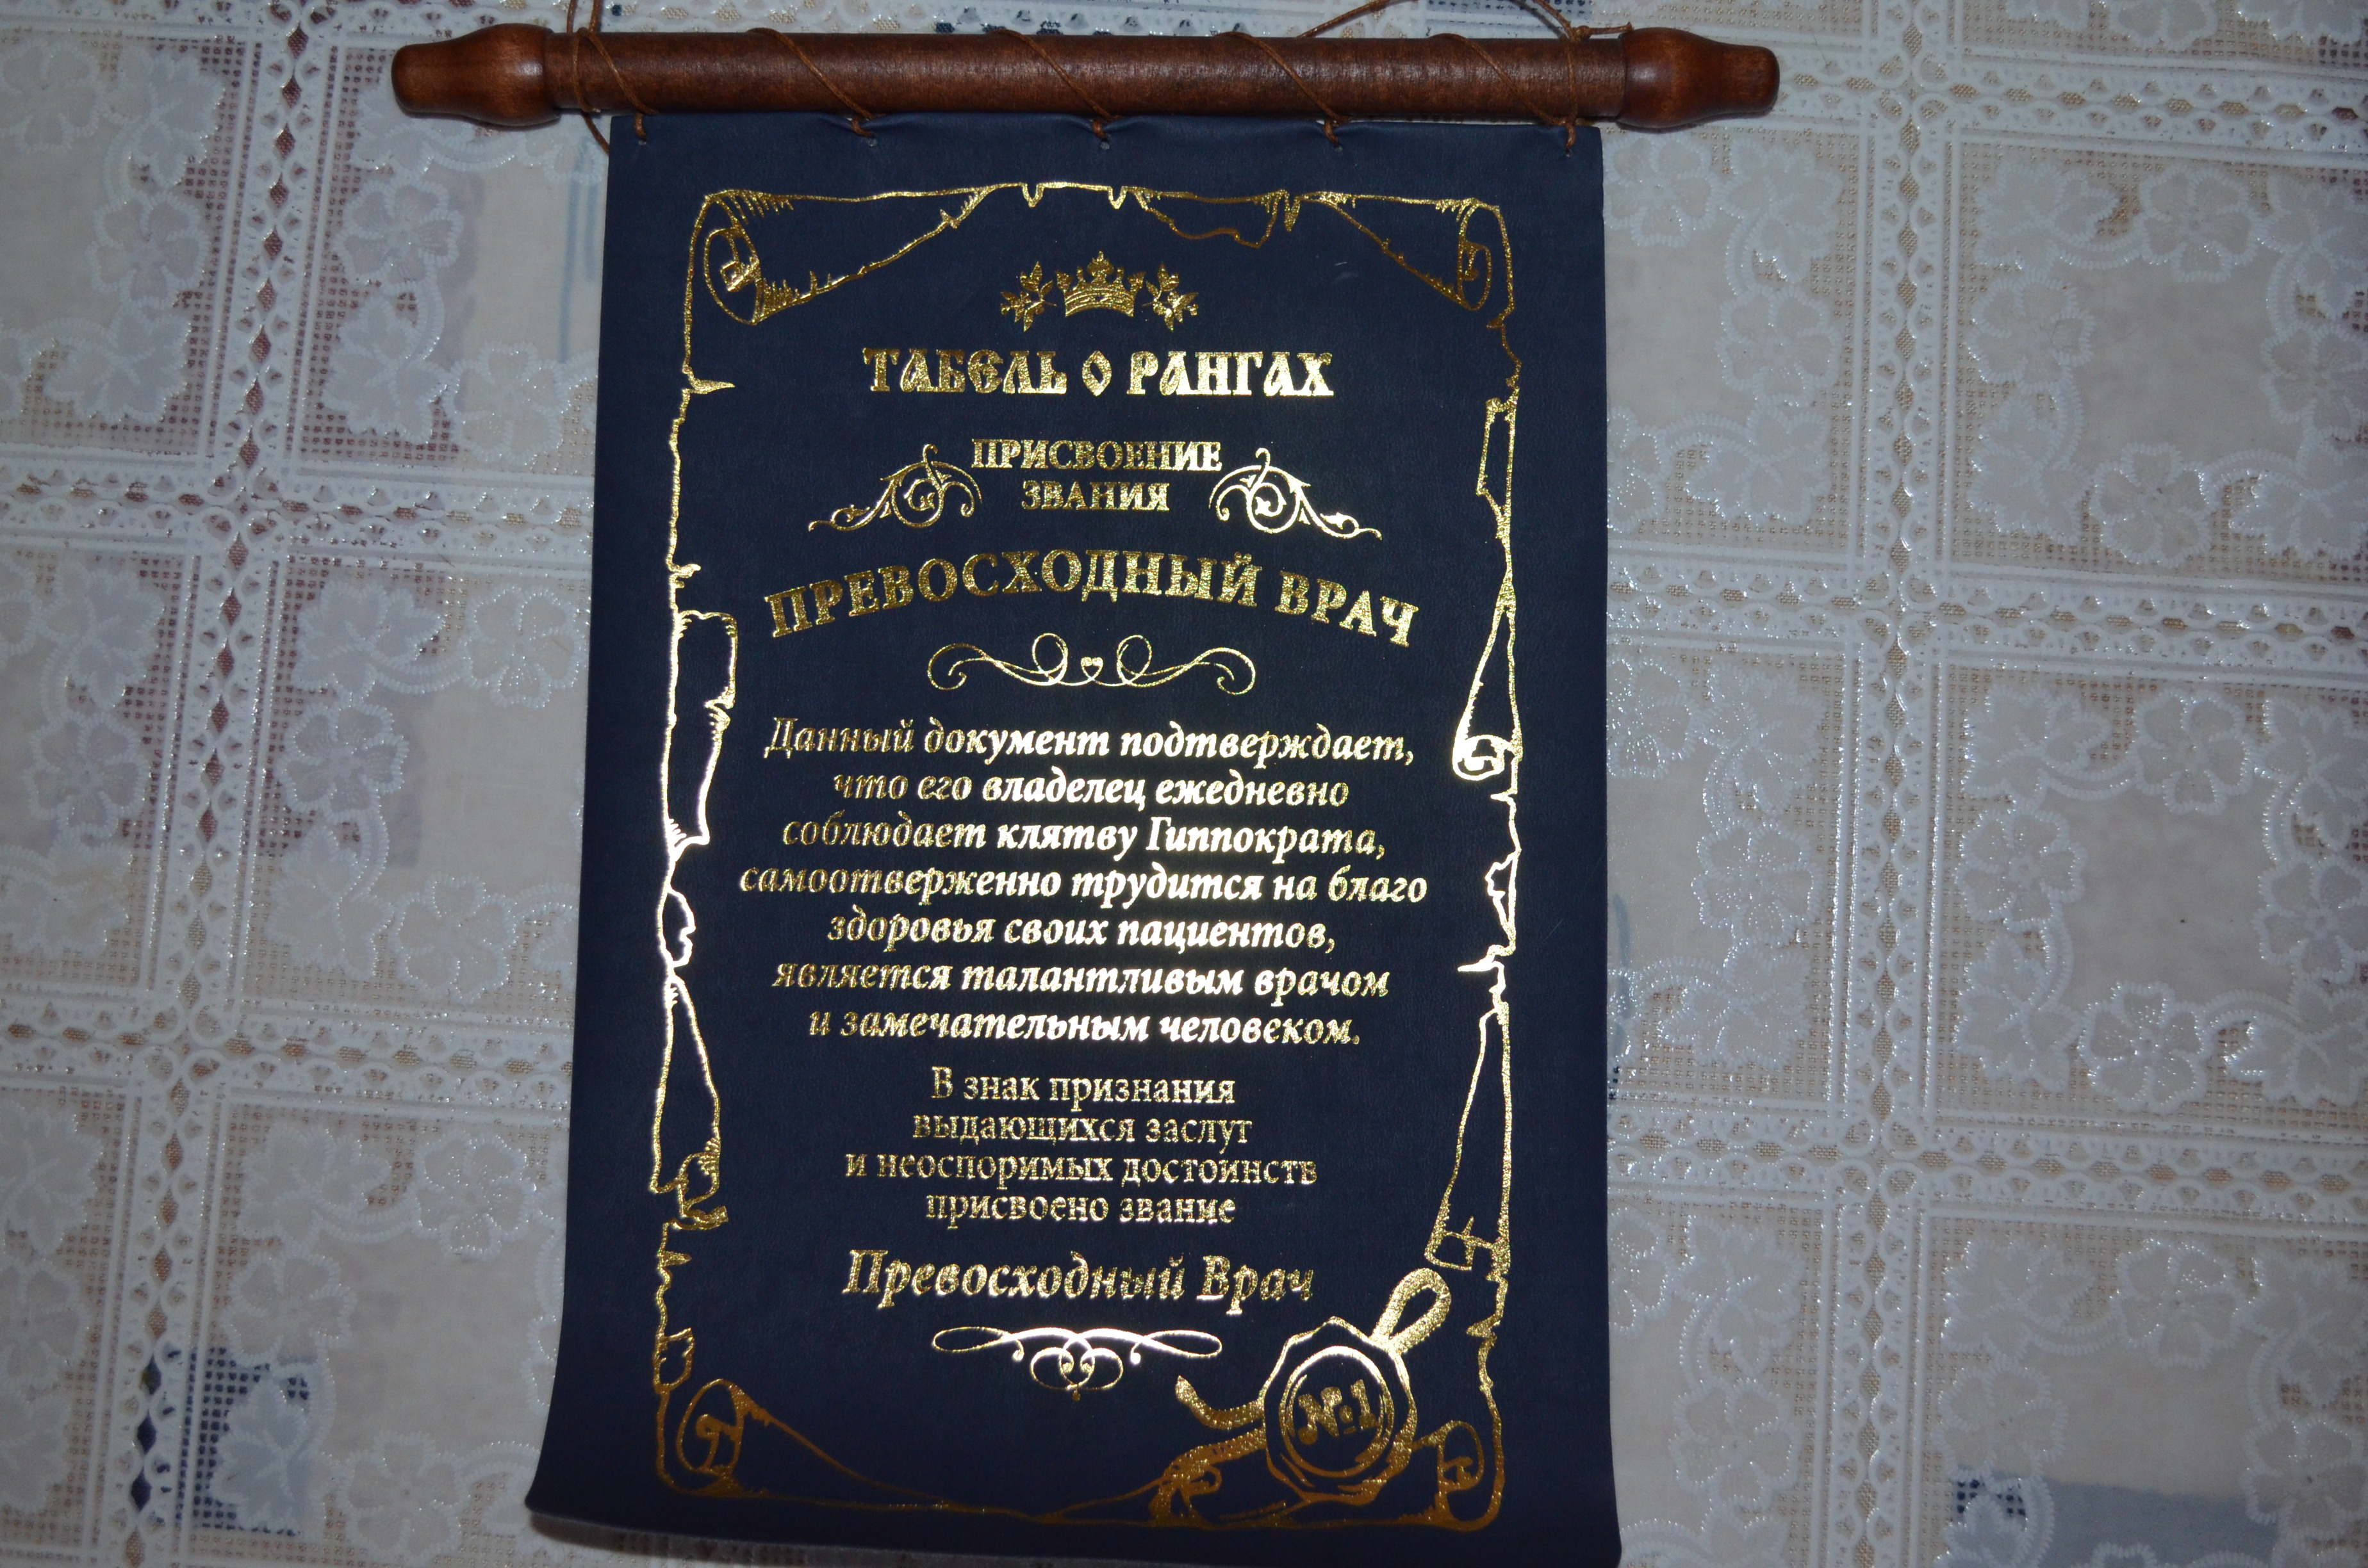 ТАБЕЛЬ О РАНГАХ
ПРИСВОЕНИЕ
ЗВАНИЯ
ПРЕВОСХОДНЫЙ ВРАЧ
Данный документ подтверждает,
что его владелец ежедневно
соблюдает клятву Гиппократа,
самоотверженно трудится на благо
здоровья своих пациентов,
является талантливым врачом
и замечательным человеком.
В знак признания
выдающихся заслуг
и неоспоримых достоинств
присвоено звание
Превосходный Врач
№1